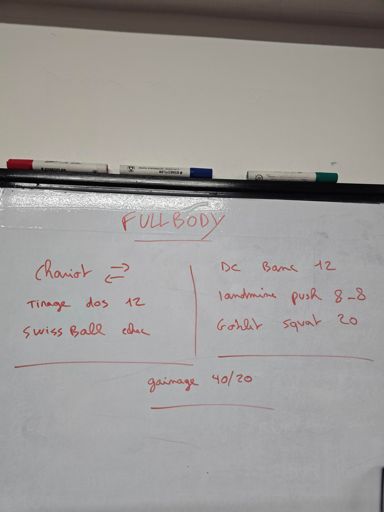 FULLBODY
Chariot ⇄
Tirage dos 12
Swiss Ball
DC Banc 12
landmine push 8_8
Goblet squat 20
gainage 40/20